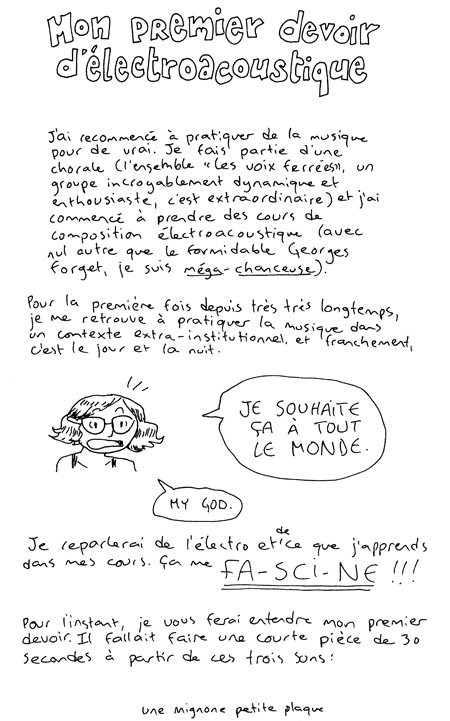 Mon premier devoir
d'électroacoustique
J'ai recommencé à pratiquer de la musique
pour de vrai. Je fais partie d'une
chorale (l'ensemble «Les voix ferrées», un
groupe incroyablement dynamique et
enthousiaste, c'est extraordinaire) et j'ai
commencé à prendre des cours de
composition électroacoustique (avec
nul autre que le formidable Georges
Forget, je suis méga-chanceuse).
Pour la première fois depuis très très longtemps,
je me retrouve à pratiquer la musique dans
un contexte extra-institutionnel, et franchement,
c'est le jour et la nuit.
JE SOUHAITE
ÇA À TOUT
LE MONDE.
MY GOD.
Je reparlerai de l'électro et de ce que j'apprends
dans mes cours. Ça me FA-SCI-NE !!!
Pour l'instant, je vous ferai entendre mon premier
devoir. Il fallait faire une courte pièce de 30
secondes à partir de ces trois sons:
une mignone petite plaque